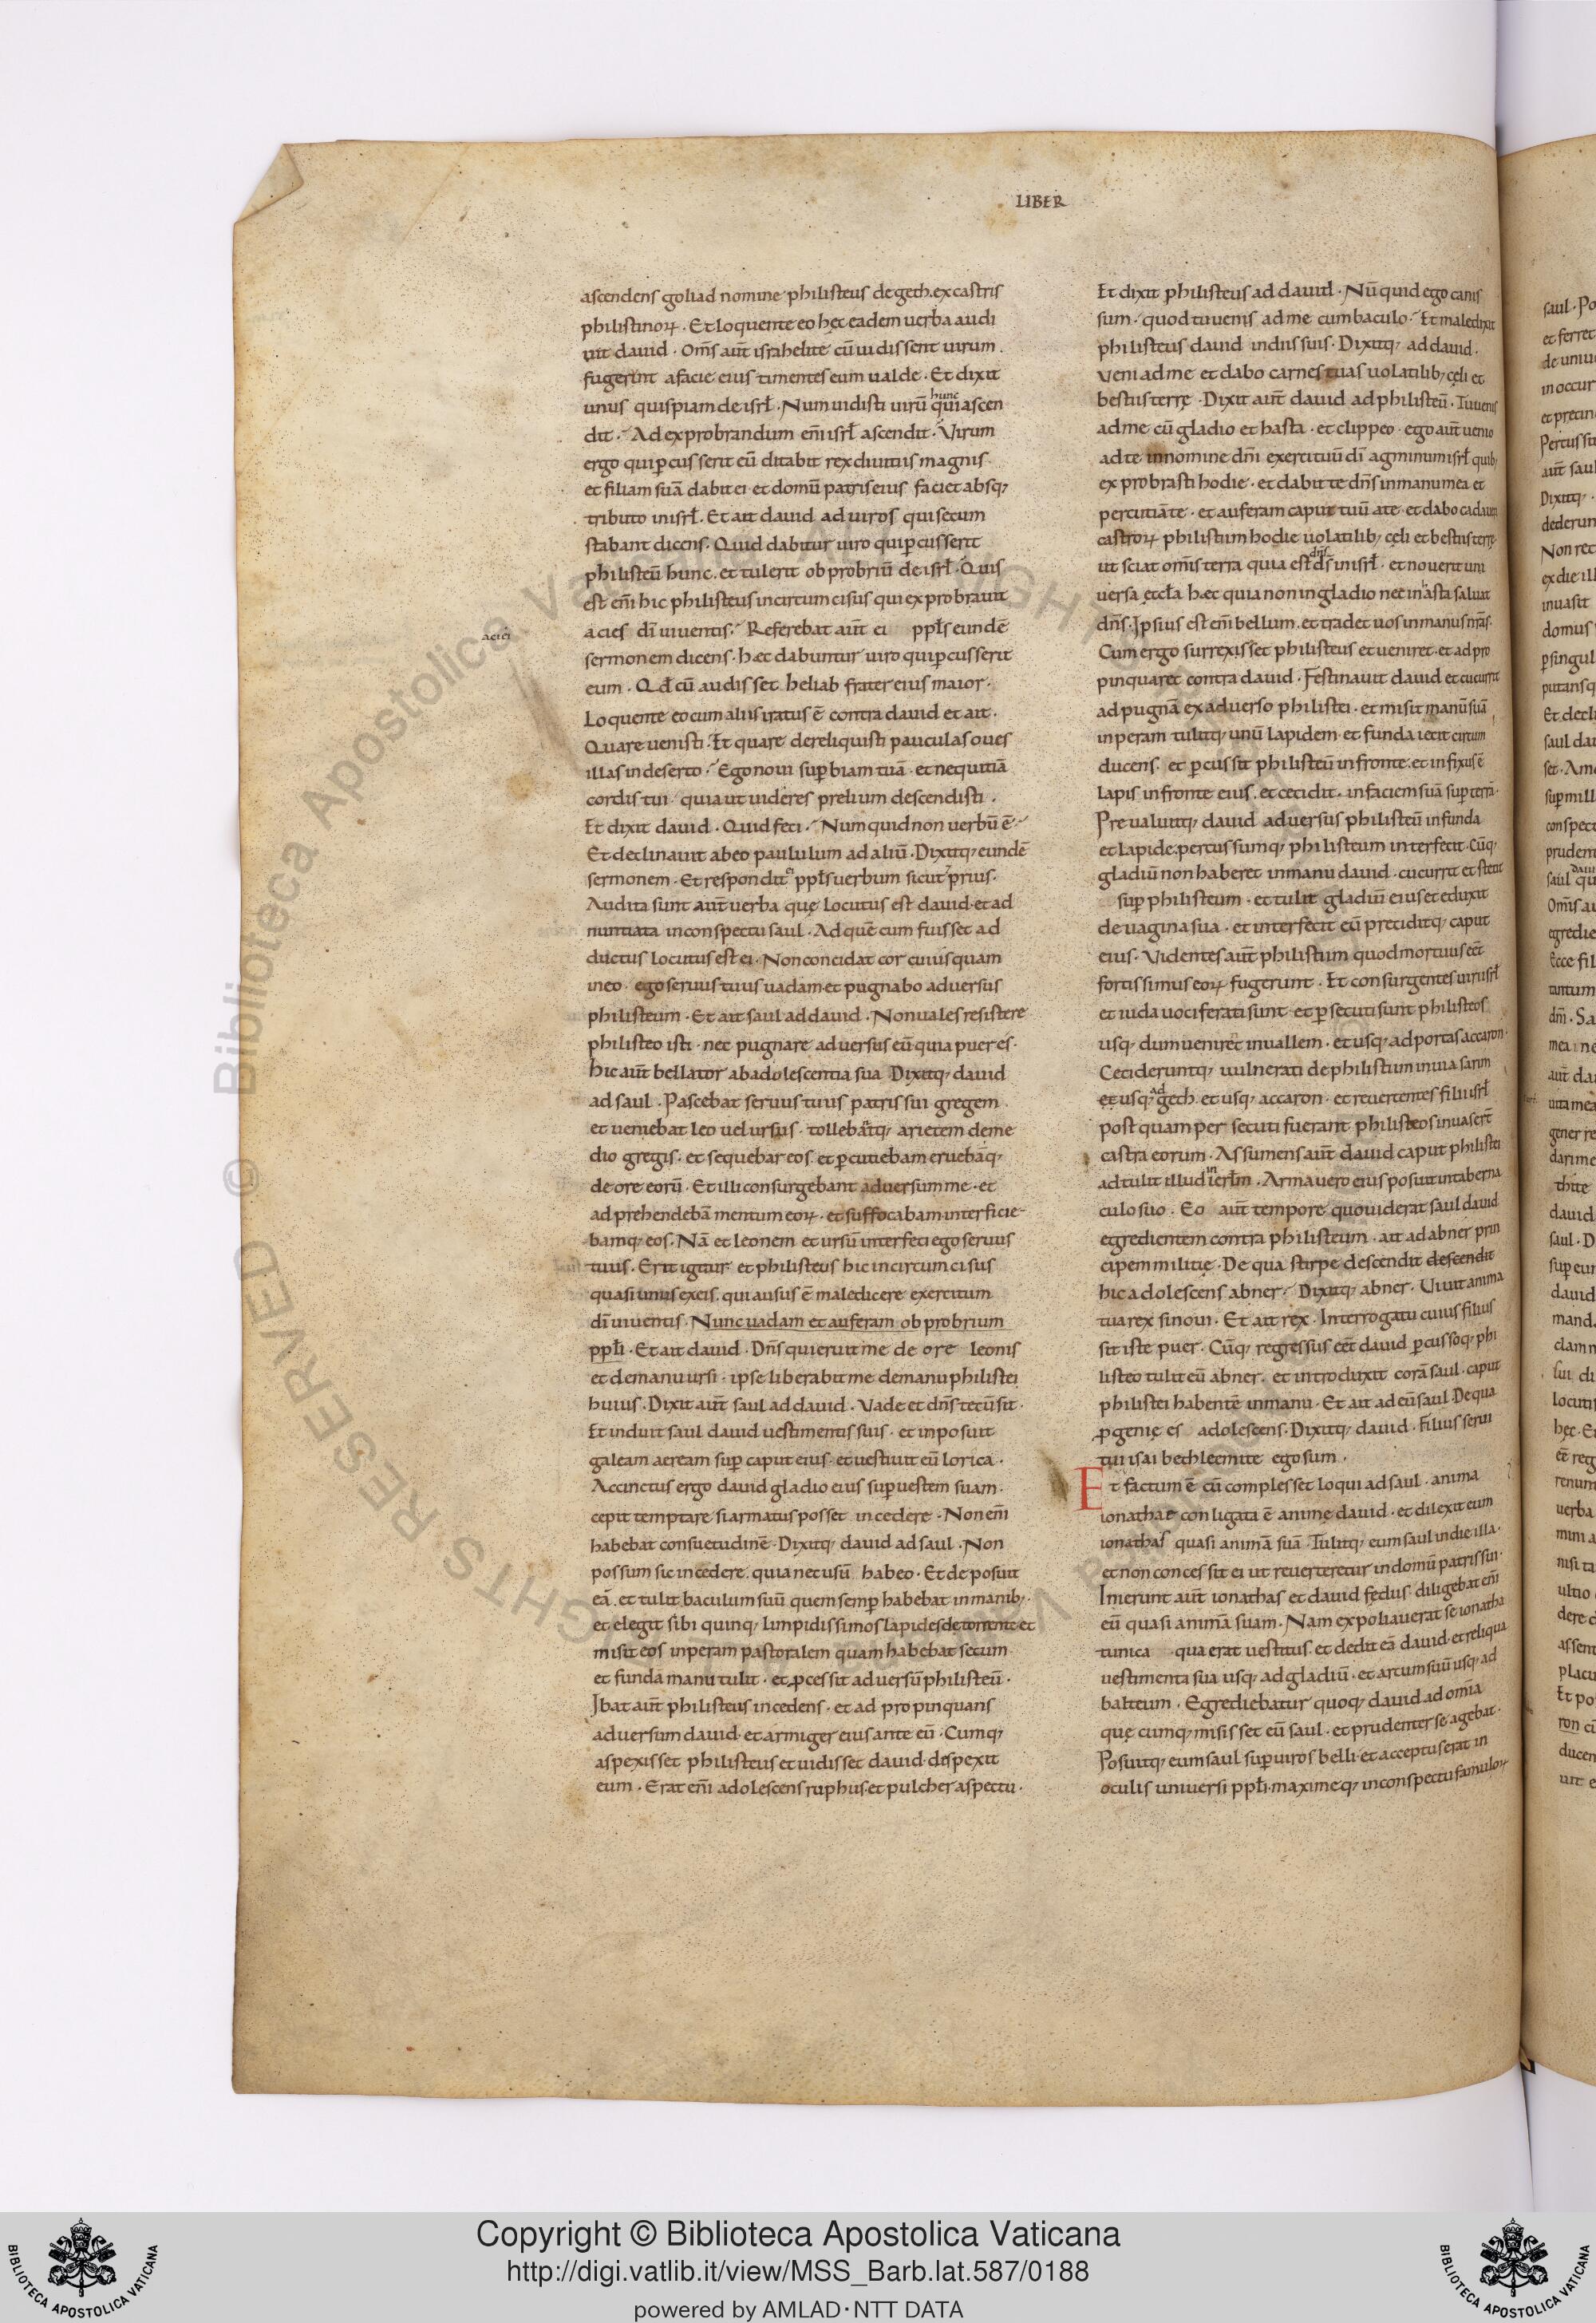 LIBER
ascendens goliad nomine philisteus de geth. ex castris
philistinoꝝ. Et loquente eo hęc eadem uerba audi
uit dauid. Om̄s aut̄ israhelitę cū uidissent uirum.
fugerunt a facie eius timentes eum ualde. Et dixit
unus quispiam de isrł. Num uidisti uirū hunc qui ascen
dit. Ad exprobrandum eni̅ isrł ascendit. Virum
ergo qui ꝑcusserit eū ditabit rex diuitiis magnis
et filiam suā dabit ei. et domū patris eius faciet absq;
tributo in isrł. Et ait dauid ad uiros qui secum
stabant dicens. Quid dabitur uiro qui ꝑcusserit
philisteū hunc. et tulerit obprobriū de isrł. Quis
est eni̅ hic philisteus incircumcisus qui exprobrauit
acies dī uiuentis. Referebat aut̄ ei ppl̄s eundē
acici
sermonem dicens. hæc dabuntur uiro qui ꝑcusserit
eum. Qd̄ cū audisset heliab frater eius maior.
Loquente eo cum aliis iratus ē contra dauid et ait.
Quare uenisti. Et quare dereliquisti pauculas oues
illas in deserto. Ego noui suꝑbiam tuā. et nequitiā
cordis tui. quia ut uideres prelium descendisti.
Et dixit dauid. Quid feci. Numquid non uerbū ē.
Et declinauit ab eo paululum ad aliū. Dixitq; eundē
sermonem. Et respondit ei ppl̄s uerbum sicut prius.
Audita sunt aut̄ uerba quę locutus est dauid. et ad
nuntiata in conspectu saul. Ad quē cum fuisset ad
ductus locutus est ei. Non concidat cor cuiusquam
in eo. ego seruus tuus uadam. et pugnabo aduersus
philisteum. Et ait saul ad dauid. Non uales resistere
philisteo isti. nec pugnare aduersus eū quia puer es.
hic aut̄ bellator ab adolescentia sua. Dixitq; dauid
ad saul. Pascebat seruus tuus patris sui gregem.
et ueniebat leo uel ursus. tollebatq; arietem de me
dio gregis. et sequebar eos. et ꝑcutiebam eruebāq;
de ore eorū. Et illi consurgebant aduersum me. et
adprehendebā mentum eoꝝ. et suffocabam interficie-
bamq; eos. Nā et leonem et ursū interfeci ego seruus
tuus. Erit igitur et philisteus hic incircumcisus
quasi unus ex eis. qui ausus ē maledicere exercitum
dī uiuentis. Nunc uadam et auferam obprobrium
ppl̄i. Et ait dauid. Dn̄s qui eruit me de ore leonis
et de manu ursi. ipse liberabit me de manu philistei
huius. Dixit aut̄ saul ad dauid. Vade et dn̄s tecū sit.
Et induit saul dauid uestimentis suis. et inposuit
galeam aeream suꝑ caput eius. et uestiuit eū lorica.
Accinctus ergo dauid gladio eius suꝑ uestem suam.
cepit temptare si armatus posset incedere. Non eni̅
habebat consuetudinē. Dixitq; dauid ad saul. Non
possum sic incedere. quia nec usū habeo. Et deposuit
eā. et tulit baculum suū quem semꝑ habebat in manib;.
et elegit sibi quinq; limpidissimos lapides de torrente et
misit eos in peram pastoralem quam habebat secum.
et funda manu tulit. et ꝓcessit aduersū philisteū.
Ibat aut̄ philisteus incedens. et adpropinquans
aduersum dauid. et armiger eius ante eū. Cumq;
aspexisset philisteus et uidisset dauid. despexit
eum. Erat eni̅ adolescens ruphus. et pulcher aspectu.
Et dixit philisteus ad dauid. Nū quid ego canis
sum. quod tu uenis ad me cum baculo. Et maledixit
philisteus dauid in diis suis. Dixitq; ad dauid.
Veni ad me et dabo carnes tuas uolatilib; cęli et
bestiis terrę. Dixit aut̄ dauid ad philisteū. Tu uenis
ad me cū gladio et hasta. et clippeo. ego aut̄ uenio
ad te in nomine dn̄i exercituū dī agminum isrł quib;
exprobrasti hodie. et dabit te dn̄s in manu mea et
percutiā te. et auferam caput tuū a te. et dabo cadauera
castroꝝ philistium hodie uolatilib; cęli et bestiis terrę.
ut sciat om̄is terra quia est dn̄s ds̄ in isrł. et nouerit uni
uersa eccła hæc quia non in gladio nec in hasta saluat
dn̄s. Ipsius est eni̅ bellum. et tradet uos in manus nr̄as.
Cum ergo surrexisset philisteus et ueniret. et adpro
pinquaret contra dauid. Festinauit dauid et cucurrit
ad pugnā ex aduerso philistei. et misit manū suā
in peram tulitq; unū lapidem. et funda iecit circum
ducens. et ꝑcussit philisteū in fronte. et infixus ē
lapis in fronte eius. et cecidit. in faciem suā suꝑ terrā.
Preualuitq; dauid aduersus philisteū in funda
et lapide. percussumq; philisteum interfecit. Cūq;
gladiū non haberet in manu dauid. cucurrit et stetit
suꝑ philisteum. et tulit gladiū eius et eduxit
de uagina sua. et interfecit eū preciditq; caput
eius. Videntes aut̄ philistium quod mortuus eēt
fortissimus eoꝝ fugerunt. Et consurgentes uiri isrł
et iuda uociferati sunt et ꝑsecuti sunt philisteos
usq; dum uenirēt in uallem. et usq; ad portas accaron.
Cecideruntq; uulnerati de philistium in uia sarim
et usq; ad geth. et usq; accaron. et reuertentes filii isrł
postquam persecuti fuerant philisteos inuasert̄
castra eorum. Assumens aut̄ dauid caput philistei
adtulit illud in ierłm. Arma uero eius posuit in taberna
culo suo. Eo aut̄ tempore quo uiderat saul dauid
egredientem contra philisteum. ait ad abner prin
cipem militię. De qua stirpe descendit descendit
hic adolescens abner. Dixitq; abner. Uiuit anima
tua rex si noui. Et ait rex. Interroga tu cuius filius
sit iste puer. Cūq; regressus eēt dauid ꝑcussoq; phi
listeo tulit eū abner. et introduxit corā saul. caput
philistei habentē in manu. Et ait ad eū saul. De qua
ꝓgenie es adolescens. Dixitq; dauid. Filius serui
tui isai bethleemitę ego sum.
Et factum ē cū complesset loqui ad saul. anima
ionathae conligata ē animę dauid. et dilexit eum
ionathas quasi animā suā. Tulitq; eum saul in die illa.
et non concessit ei ut reuerteretur in domū patris sui.
Inierunt aut̄ ionathas et dauid fędus. diligebat eni̅
eū quasi animā suam. Nam expoliauerat se ionatha
tunica qua erat uestitus. et dedit eā dauid. et reliqua
uestimenta sua usq; ad gladiū. et arcum suū usq; ad
balteum. Egrediebatur quoq; dauid ad omīa
quę cumq; misisset eū saul. et prudenter se agebat.
Posuitq; eum saul suꝑ uiros belli. et acceptus erat in
oculis uniuersi ppl̄i. maximeq; in conspectu famuloꝝ
Copyright © Biblioteca Apostolica Vaticana
http://digi.vatlib.it/view/MSS_Barb.lat.587/0188
powered by AMLAD·NTT DATA
BIBLIOTECA APOSTOLICA VATICANA
BIBLIOTECA APOSTOLICA VATICANA